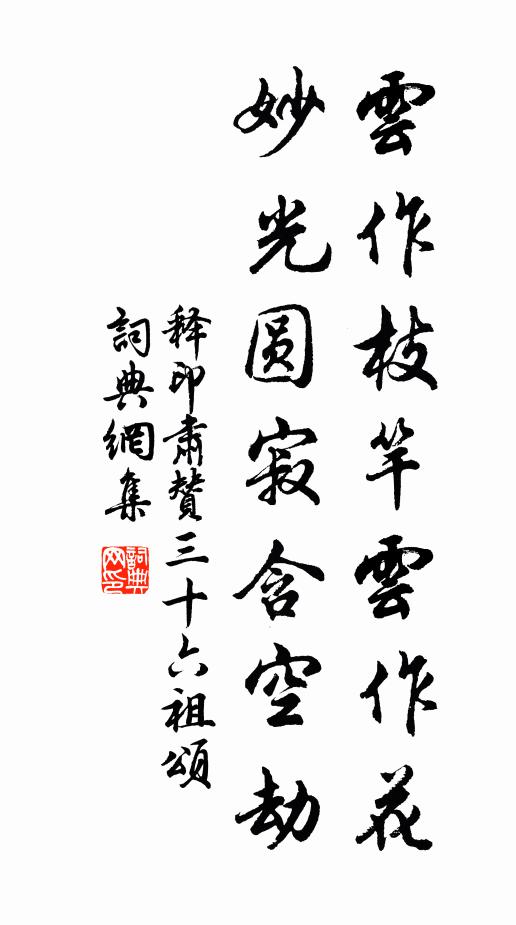 雲作枝竿雲作花
妙光圆寂含空劫
释印肃賛三十六祖頌
詞典網集
詞典
网印